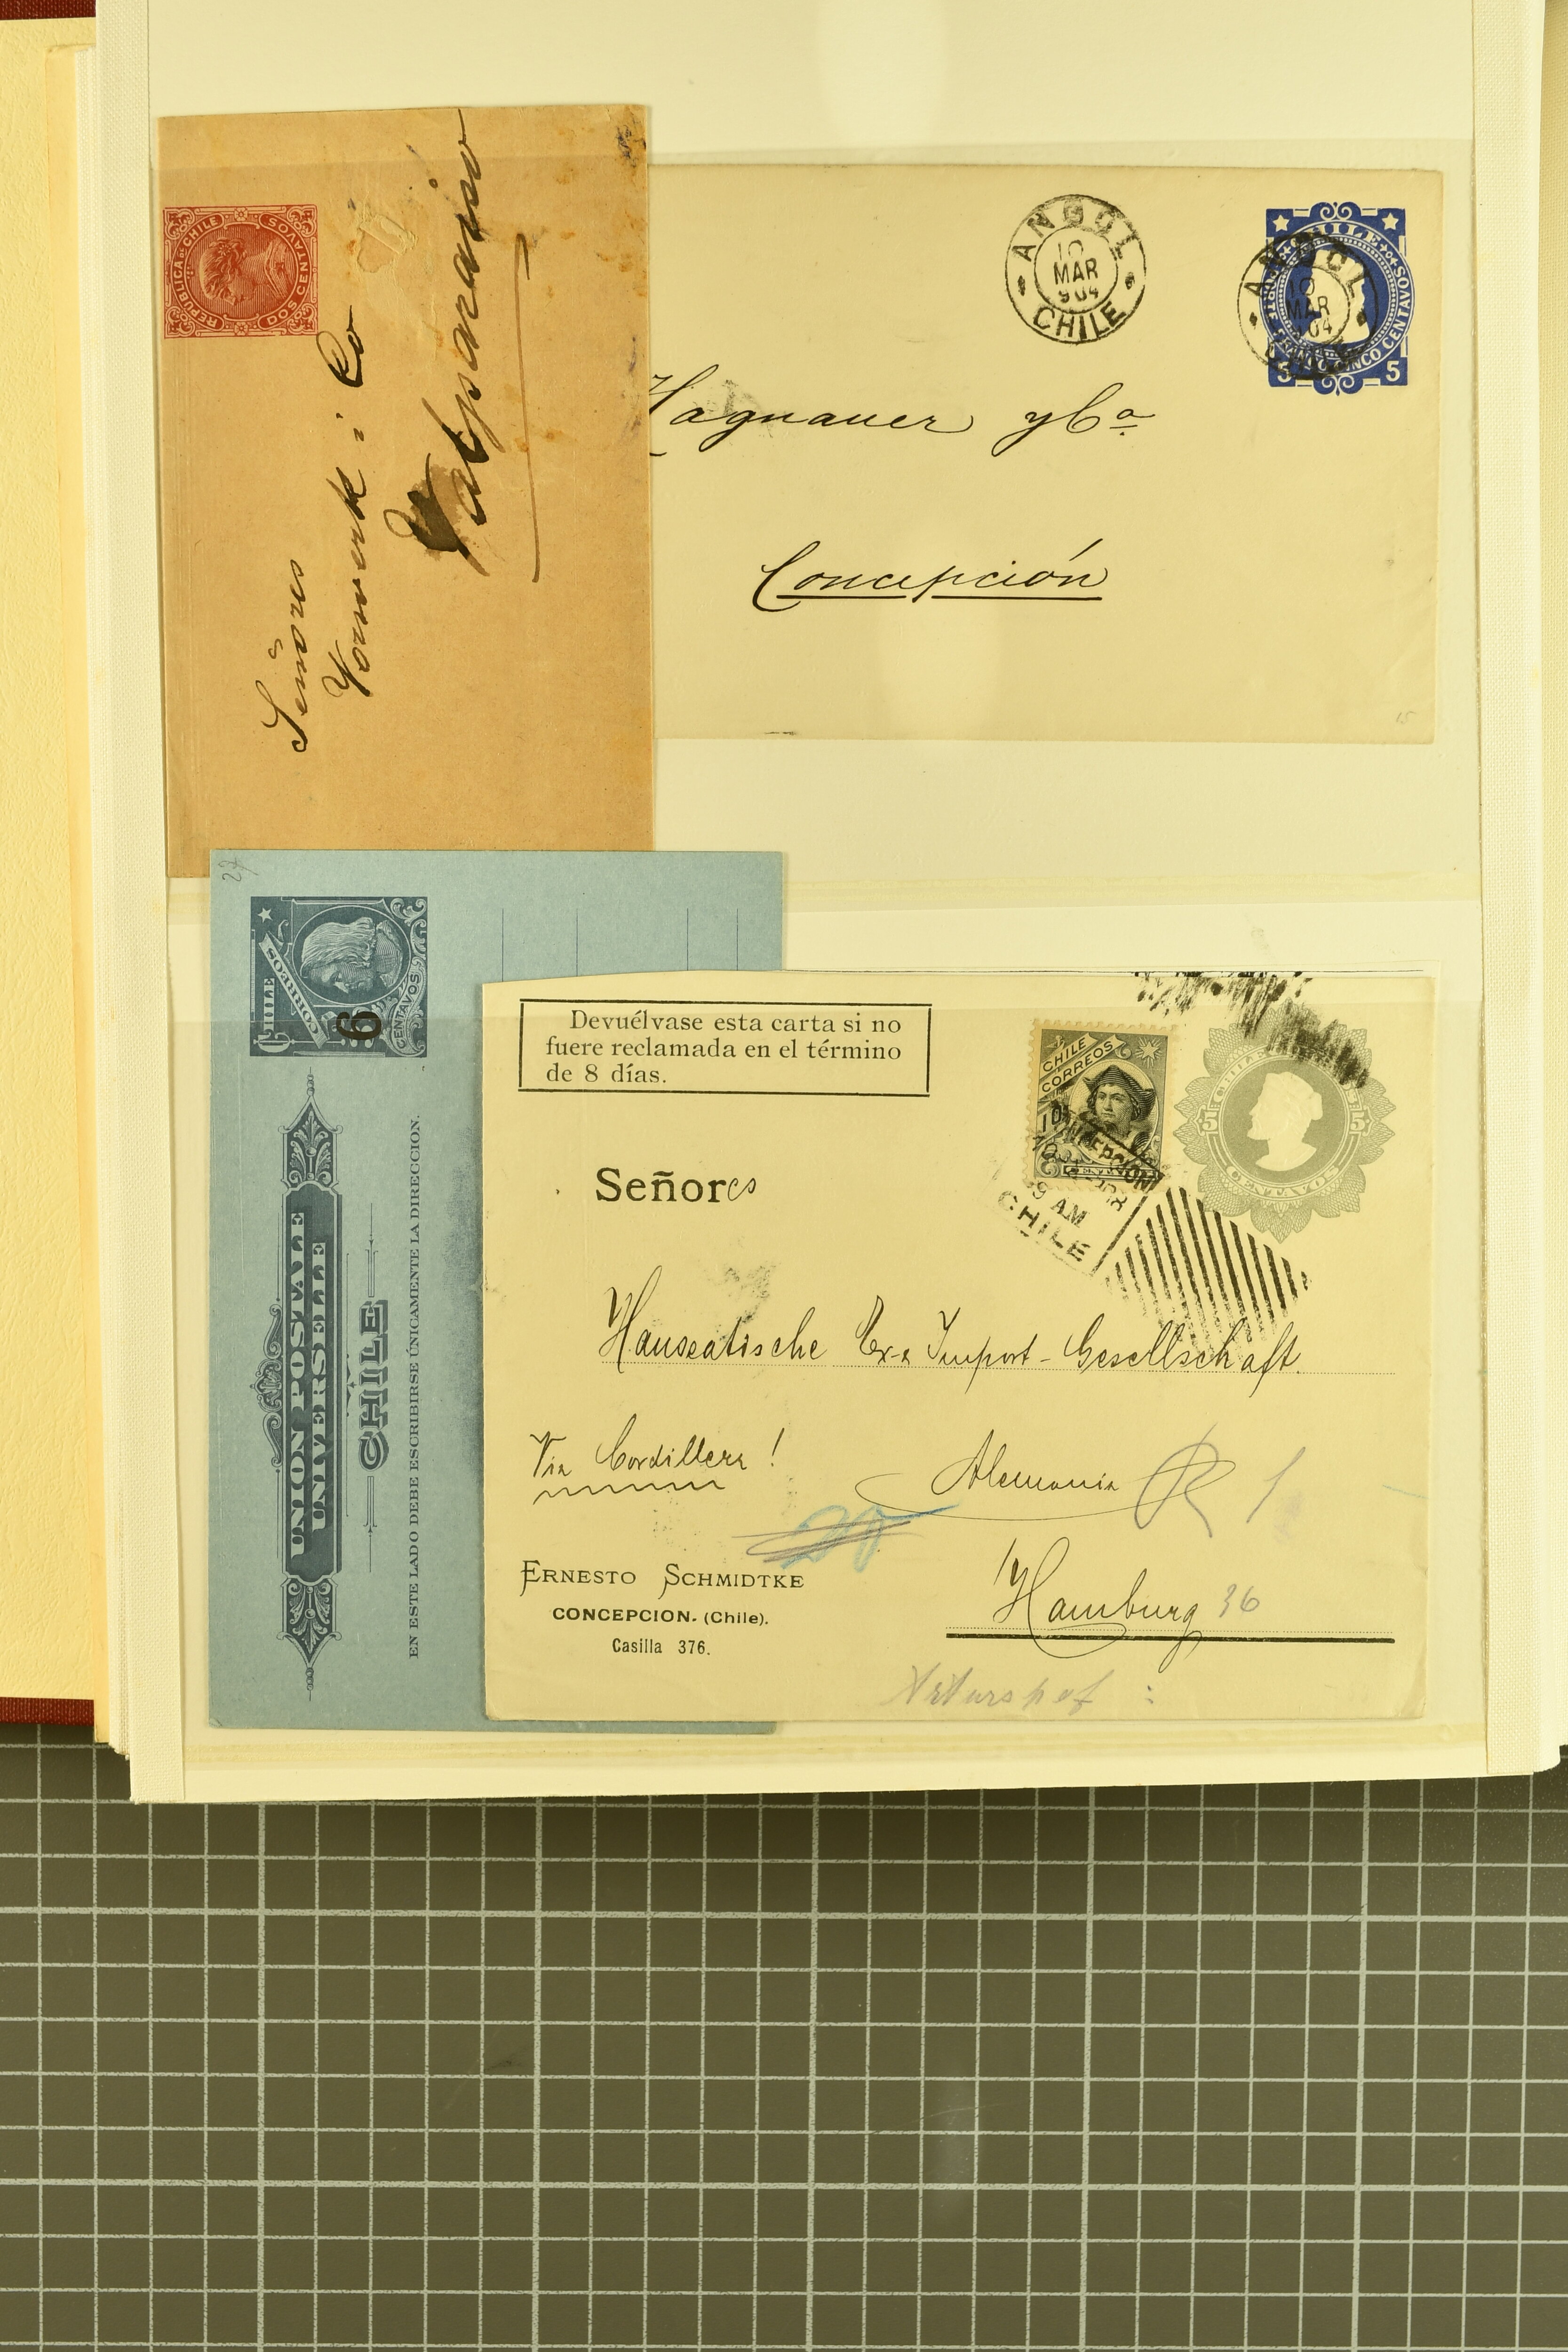 REPUBLICA DE CHILE
DOS CENTAVOS
Señores
Vorwerk i Co
Valparaiso
ANGOL
10
MAR
904
CHILE
ANGOL
10
MAR
904
CHILE
CINCO CENTAVOS
5 5
Hagnauer y Ca
Concepción
15
27
CHILE
CORREOS
6
CENTAVOS
UNION POSTALE
UNIVERSELLE
CHILE
EN ESTE LADO DEBE ESCRIBIRSE ÚNICAMENTE LA DIRECCION.
Devuélvase esta carta si no
fuere reclamada en el término
de 8 días.
CHILE
CORREOS
10
CONCEPCION
9 AM
CHILE
5 5
CENTAVOS
Señores
Hanseatische Ex- & Import-Gesellschaft.
Via Cordillera!
Alemania
R 1
20
Hamburg 36
ERNESTO SCHMIDTKE
CONCEPCION. (Chile).
Casilla 376.